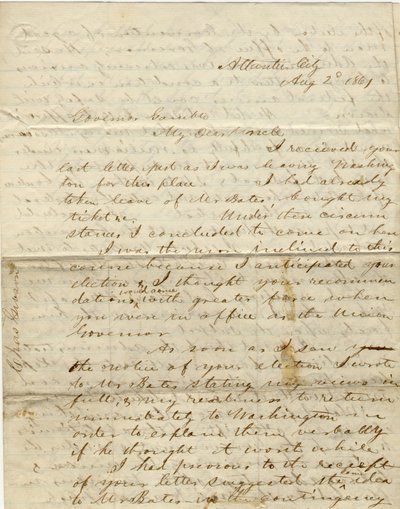 Atlantic City
Aug 2d 1861
Governor Gamble
My dear Uncle
I received your
last letter just as I was leaving Washing
ton for this place I had already
taken leave of Mr Bates, bought my
ticket &c. Under these circum
stances I concluded to come on here
I was the more inclined to this
course because I anticipated your
election & I thought your recommen
dations would come with greater force when
you were in office as the Union
Governor
As soon as I saw
the notice of your election I wrote
to Mr Bates stating my views in
full, & my readiness to return
immediately to Washington in
order to explain them verbally
if he thought it worth while
I had previous to the reciept
of your letter suggested the idea
to Mr Bates in the contingency